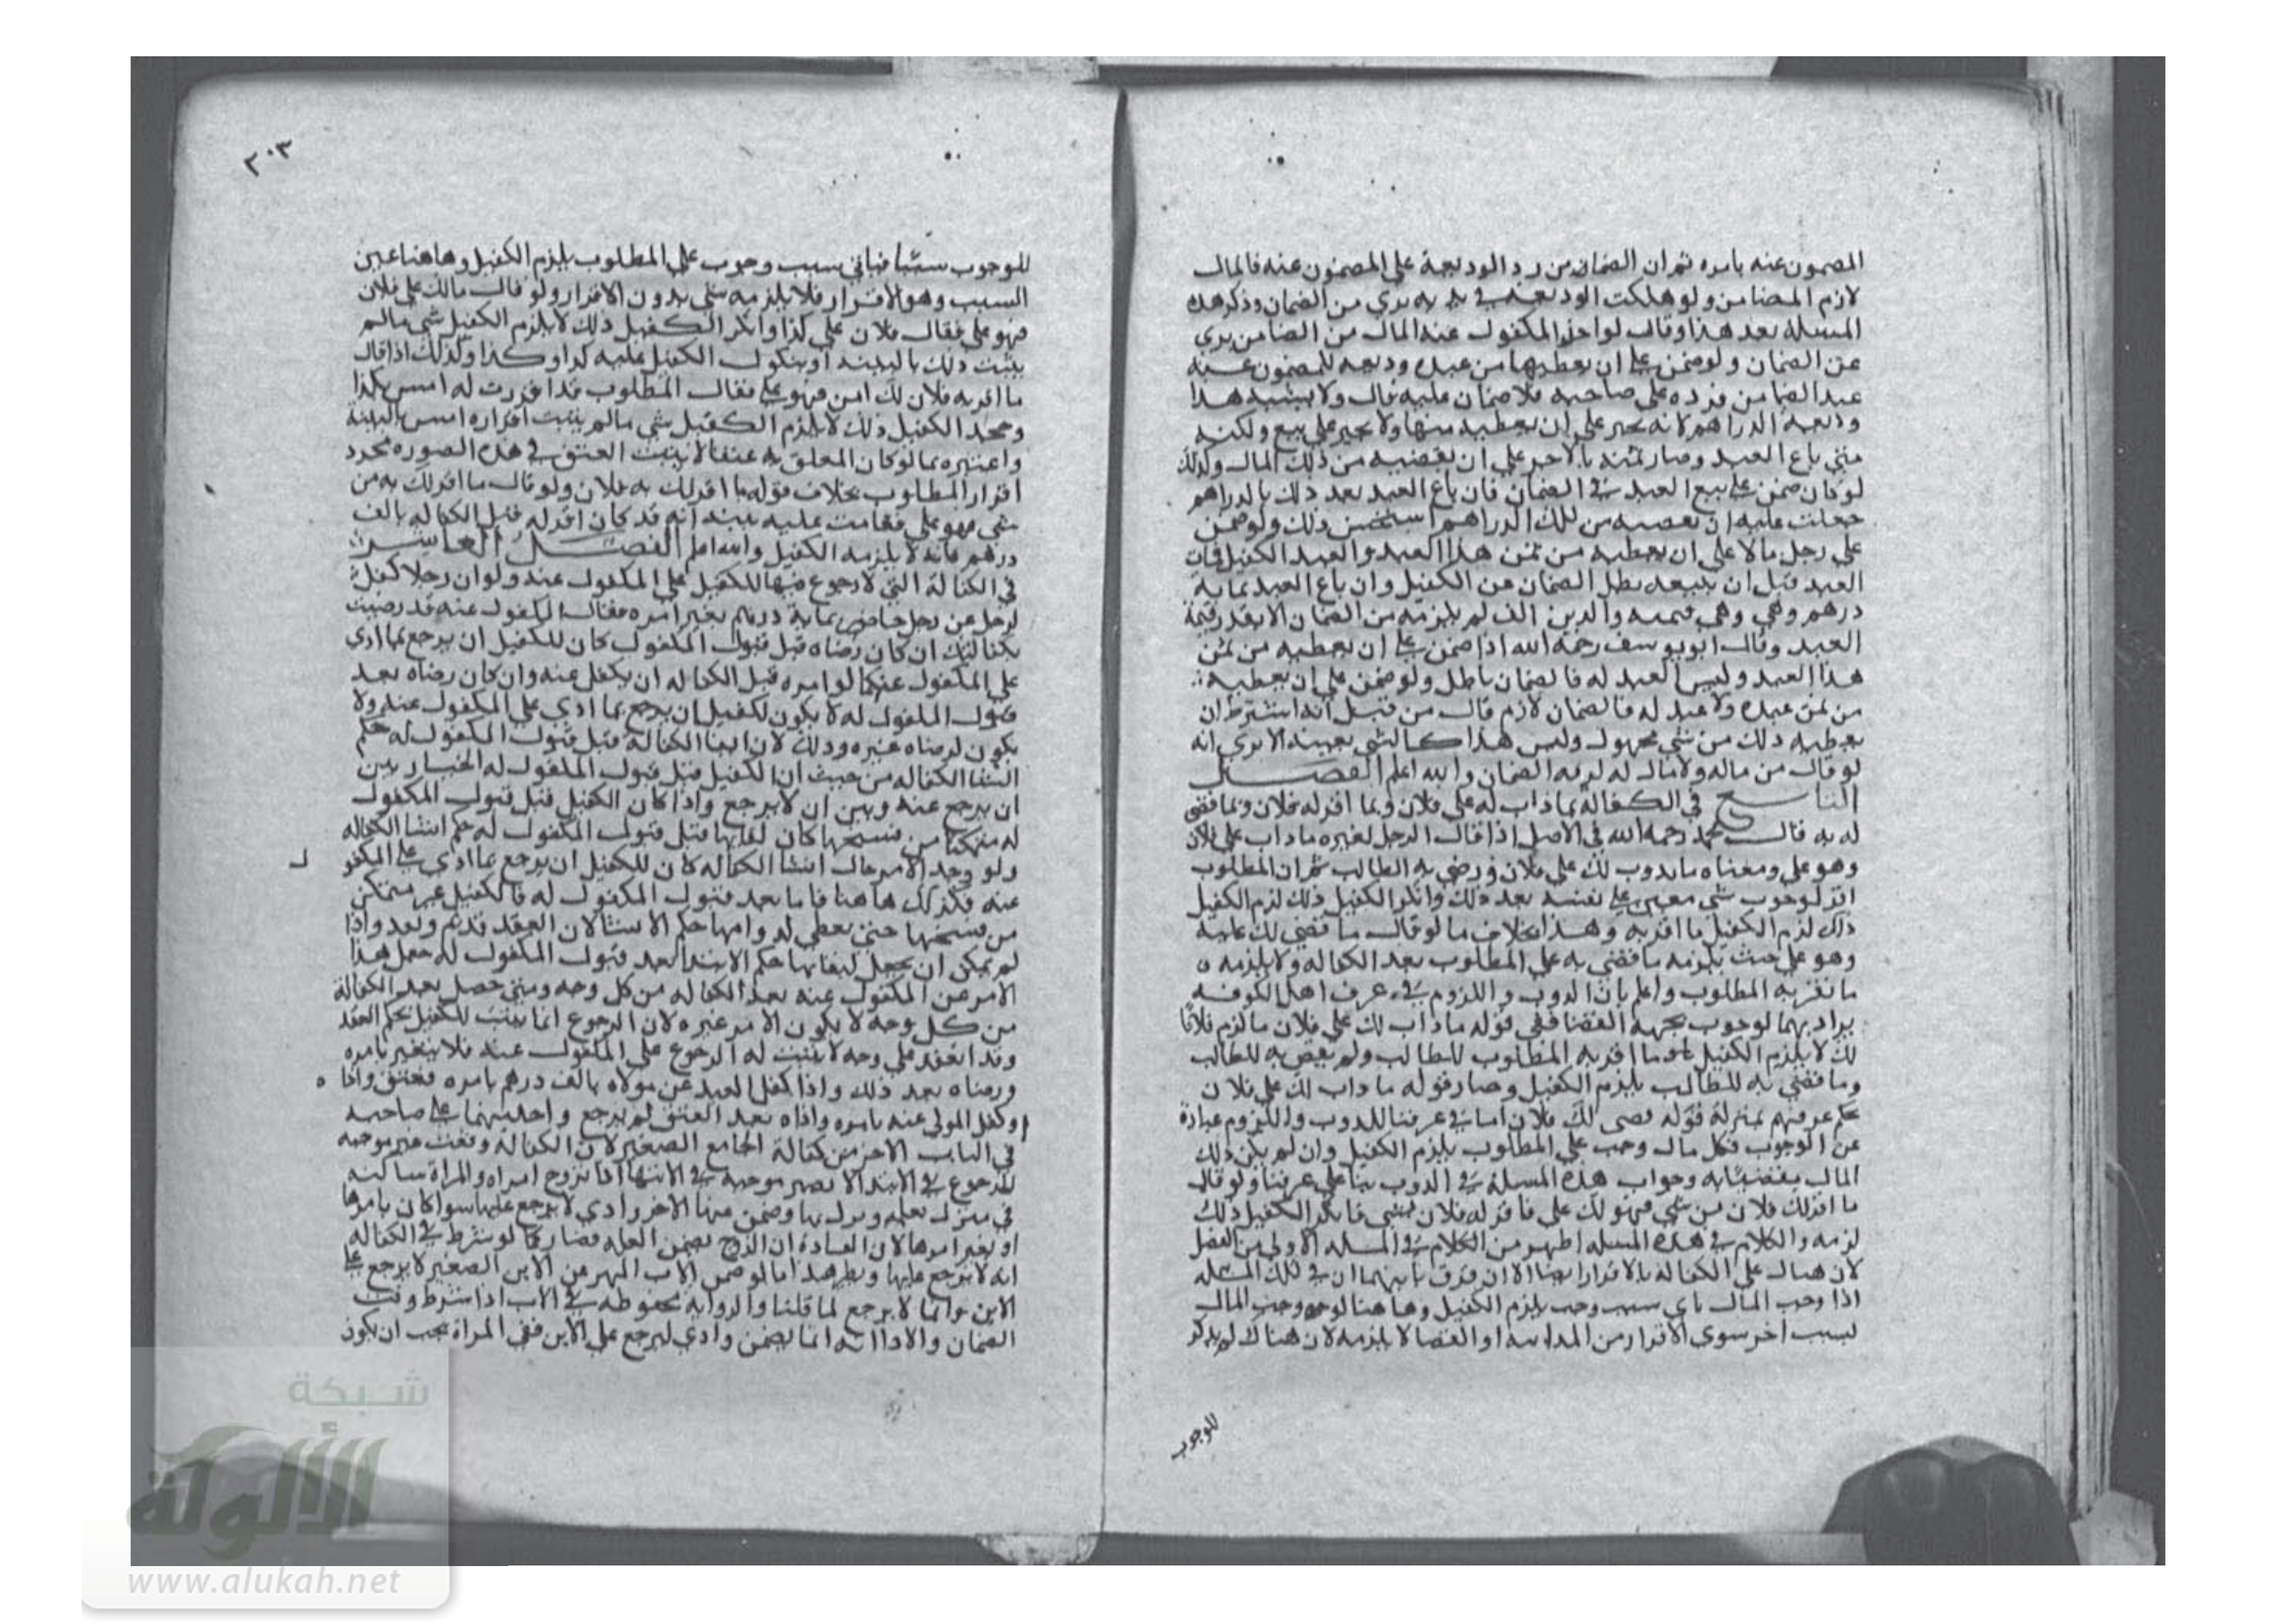 المضمون عنه بامره ثم ان الضمان من رد الوديعة على المضمون عنه فالمال
لازم الضامن ولو هلكت الوديعه في يده بري من الضمان وذكر هذه
المسله بعد هذا وقال لو اخذ المكفول عنه المال من الضامن بري
عن الضمان ولو ضمن على ان يعطيها من عبده وديعه للمضمون عنه
عبد الضامن فرده على صاحبه فلا ضمان عليه قال ولا يشبه هذا
وديعه الدراهم لانه يجبر على ان يعطيه منها ولا يجبر على بيع ولكنه
متى باع العبد وصار ثمنه بالاجر على ان يقضيه من ذلك المال وكذلك
لو كان ضمن على بيع العبد في الضمان فان باع العبد بعد ذلك بالدراهم
جعلت عليه ان يعطيه من تلك الدراهم استحسن ذلك ولو ضمن
على رجل مالا على ان يعطيه من ثمن هذا العبد والعبد الكفيل فمات
العبد قبل ان يبيعه بطل الضمان عن الكفيل وان باع العبد بماية
درهم وهي وهي قيمته والدين الف لم يلزمه من الضمان الا بقدر قيمة
العبد وقال ابو يوسف رحمة الله اذا ضمن على ان يعطيه من ثمن
هذا العبد وليس العبد له فالضمان باطل ولو ضمن على ان يعطيه
من ثمن عبده ولا عبد له فالضمان لازم قال من قبل انه اشترط ان
يعطيه ذلك من شي مجهول وليس هذا كالشي بعينه الا يري انه
لو قال من ماله ولا مال له لزمه الضمان والله اعلم الفصل
التاسع في الكفالة بما ذاب له على فلان وبما اقر له فلان وبما قضى
له به قال محمد رحمه الله في الاصل اذا قال الرجل لغيره ما ذاب على فلان
وهو علي ومعناه ما يدوب لك على فلان ورضي به الطالب ثم ان المطلوب
اقر لوجوب شي معين على نفسه بعد ذلك وانكر الكفيل ذلك لزم الكفيل
ذلك لزم الكفيل ما اقر به وهذا بخلاف ما لو قال ما قضي لك عليه
وهو علي حيث يلزمه ما قضي به على المطلوب بعد الكفاله ولا يلزمه
ما يقر به المطلوب واعلم بان الدوب واللزوم في عرف اهل الكوفه
يراد بهما لوجوب بجهة القضا ففي قوله ما ذاب لك على فلان ما لزم فلانا
لك لا يلزم الكفيل ما اقر به المطلوب للطالب ولم يقض به للطالب
وما قضي به للطالب يلزم الكفيل وصار قوله ما ذاب لك على فلان
بحكم عرفهم بمنزلة قوله قضى لك فلان اما في عرفنا للدوب واللزوم عبادة
عن الوجوب فكل مال وجب على المطلوب يلزم الكفيل وان لم يكن ذلك
المال مقضيا به وجواب هذه المسلة في الدوب بنا على عرفنا ولو قال
ما اقر لك فلان من شي فهو لك علي فاقر له فلان بشي فانكر الكفيل ذلك
لزمه والكلام في هذه المسله اظهر من الكلام في المسله الاولى من الفصل
لان هناك على الكفاله بالاقرار ايضا الا ان فرق ما بينهما ان في تلك المسله
اذا وجب المال باي سبب وجب يلزم الكفيل وها هنا لو وجب المال
لسبب اخر سوى الاقرار من المداينه او القضا لا يلزمه لان هناك لم يذكر
للوجوب
٢٠٣
للوجوب سببا فباي سبب وجوب على المطلوب يلزم الكفيل وها هنا عين
السبب وهو الاقرار فلا يلزمه شي بدون الاقرار ولو قال مالك على فلان
فهو علي فقال فلان علي كذا وانكر الكفيل ذلك لا يلزم الكفيل شي ما لم
يثبت ذلك بالبينه او بنكول الكفيل عليه كدا وكذا وكذلك اذا قال
ما اقر به فلان لك امس فهو علي فقال المطلوب قد اقررت له امس بكذا
وجحد الكفيل ذلك لا يلزم الكفيل شي ما لم يثبت اقراره امس بالبينة
واعتبره بما لو كان المعلق به عتقا لا يثبت العتق في هذه الصوره بمجرد
اقرار المطلوب بخلاف قوله ما اقر لك به فلان ولو قال ما اقر لك به من
شي فهو علي فقامت عليه بينه انه قد كان اقر له قبل الكفاله بالف
درهم فانه لا يلزمه الكفيل والله اعلم الفصل العاشر
في الكفالة التي لا رجوع فيها للكفيل على المكفول عنه ولو ان رجلا كفل
لرجل عن رجل حاضر بماية درهم بغير امره فقال المكفول عنه قد رضيت
بكفالتك ان كان رضاه قبل قبول المكفول كان للكفيل ان يرجع بما ادى
على المكفول عنه كما لو امره قبل الكفاله ان يكفل عنه وان كان رضاه بعد
قبول المكفول له لا يكون لكفيل ان يرجع بما ادي على المكفول عنه ولا
يكون لرضاه عبره وذلك لان ابقا الكفالة قبل قبول المكفول له حكم
انشا الكفاله من حيث ان الكفيل قبل قبول المكفول له الخيار بين
ان يرجع عنه وبين ان لا يرجع واذا كان الكفيل قبل قبول المكفول
له متمكنا من فسخها كان لبقايها قبل قبول المكفول له حكم انشا الكفاله
ولو وجد الامر حال انشا الكفاله كان للكفيل ان يرجع بما ادى على المكفو ل
عنه فكذلك ها هنا فاما بعد قبول المكفول له فالكفيل غير متمكن
من فسخها حتى يعطي له دوامها حكم الانشا لان العقد قد تم ونفذ واذا
لم يمكن ان يجعل لبقايها حكم الابتدا بعد قبول المكفول له جعل هذا
الامر عن المكفول عنه بعد الكفاله من كل وجه ومتى حصل بعد الكفالة
من كل وجه لا يكون الامر عبره لان الرجوع انما يثبت للكفيل بحكم العقد
وقد انعقد على وجه لا يثبت له الرجوع على المكفول عنه فلا يتغير بامره
ورضاه بعد ذلك واذا كفل العبد عن مولاه بالف درهم بامره فعتق واداه
او كفل المولى عنه بامره واداه بعد العتق لم يرجع واحد منهما على صاحبه
في الباب الاخر من كفالة الجامع الصغير لان الكفالة وقعت غير موجبه
للرجوع في الابتدا لا تصير موجبة في الانتها اذا تزوج امراه والمراة ساكنه
في منزل بعله ونزل بها وضمن عنها الاجر وادي لا يرجع عليها سوا كان بامرها
او بغير امرها لان العادة ان الزوج يضمن الغله فصار كما لو شرط في الكفاله
انه لا يرجع عليها ونظير هذا ما لو ضمن الاب المهر عن الابن الصغير لا يرجع على
الابن وانما لا يرجع لما قلنا والروايه محفوظه في الاب اذا شرط وقت
الضمان والادا انه انما يضمن وادي ليرجع على الابن ففي المراة يجب ان يكون
شبكة
الألولة
www.alukah.net